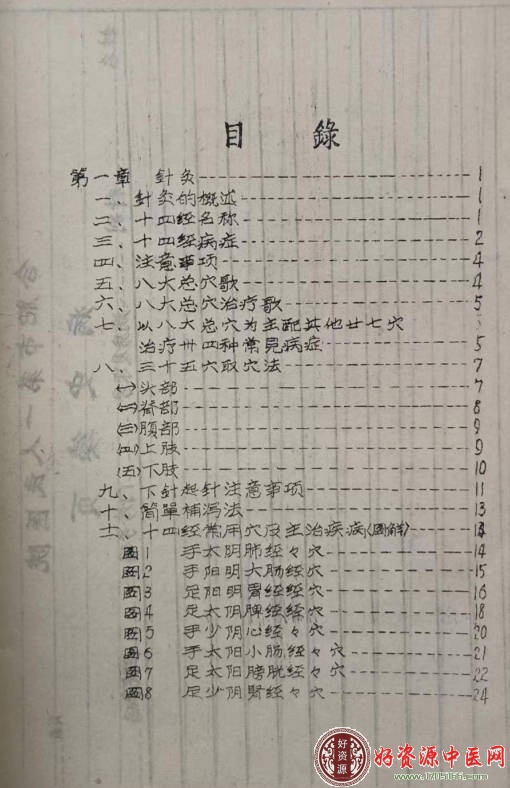 目 錄
第一章 針灸 1
一、針灸的概述 1
二、十四經名称 1
三、十四經病症 2
四、注意事项 4
五、八大总穴歌 4
六、八大总穴治疗歌 5
七、以八大总穴为主配其他廿七穴
治疗卅四种常見病症 5
八、三十五穴取穴法 7
㈠头部 7
㈡脊部 8
㈢腹部 9
㈣上肢 9
㈤下肢 10
九、下針起針注意事项 11
十、简單補瀉法 13
十一、十四經常用穴及主治疾病(图解) 14
图1 手太阴肺經々穴 14
图2 手阳明大肠經穴 15
图3 足阳明胃經經穴 16
图4 足太阴脾經經穴 18
图5 手少阴心經々穴 20
图6 手太阳小肠經々穴 21
图7 足太阳膀胱經々穴 22
图8 足少阴腎經々穴 24
好资源
中医
好资源中医网
www.JM5166.com